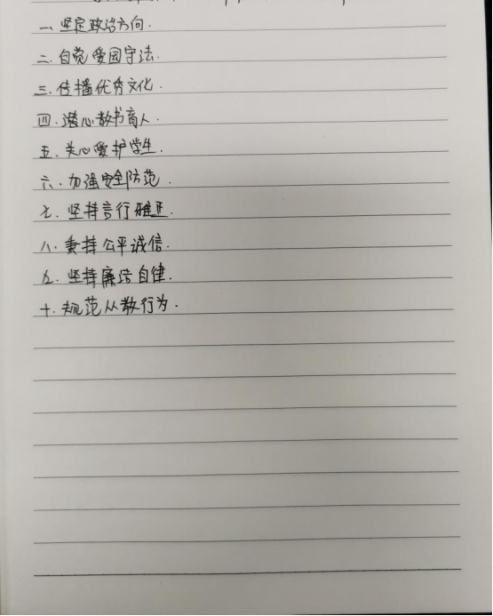 一. 坚定政治方向.
二. 自觉爱国守法.
三. 传播优秀文化.
四. 潜心教书育人.
五. 关心爱护学生.
六. 加强安全防范.
七. 坚持言行雅正.
八. 秉持公平诚信.
九. 坚持廉洁自律.
十. 规范从教行为.